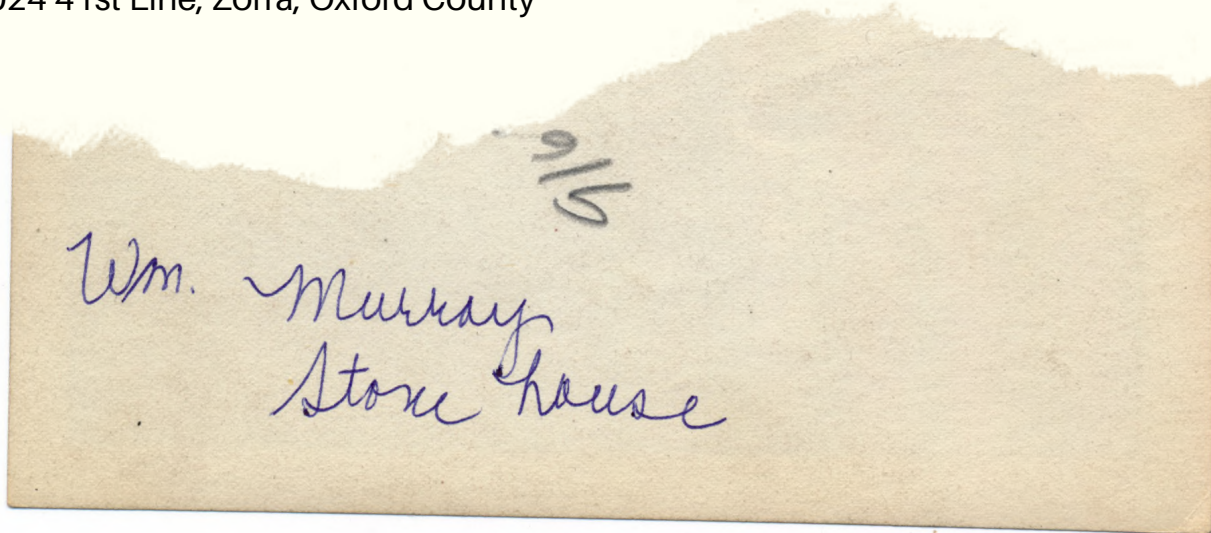 41st Line, Zorra, Oxford County
Wm. Murray
Stone house